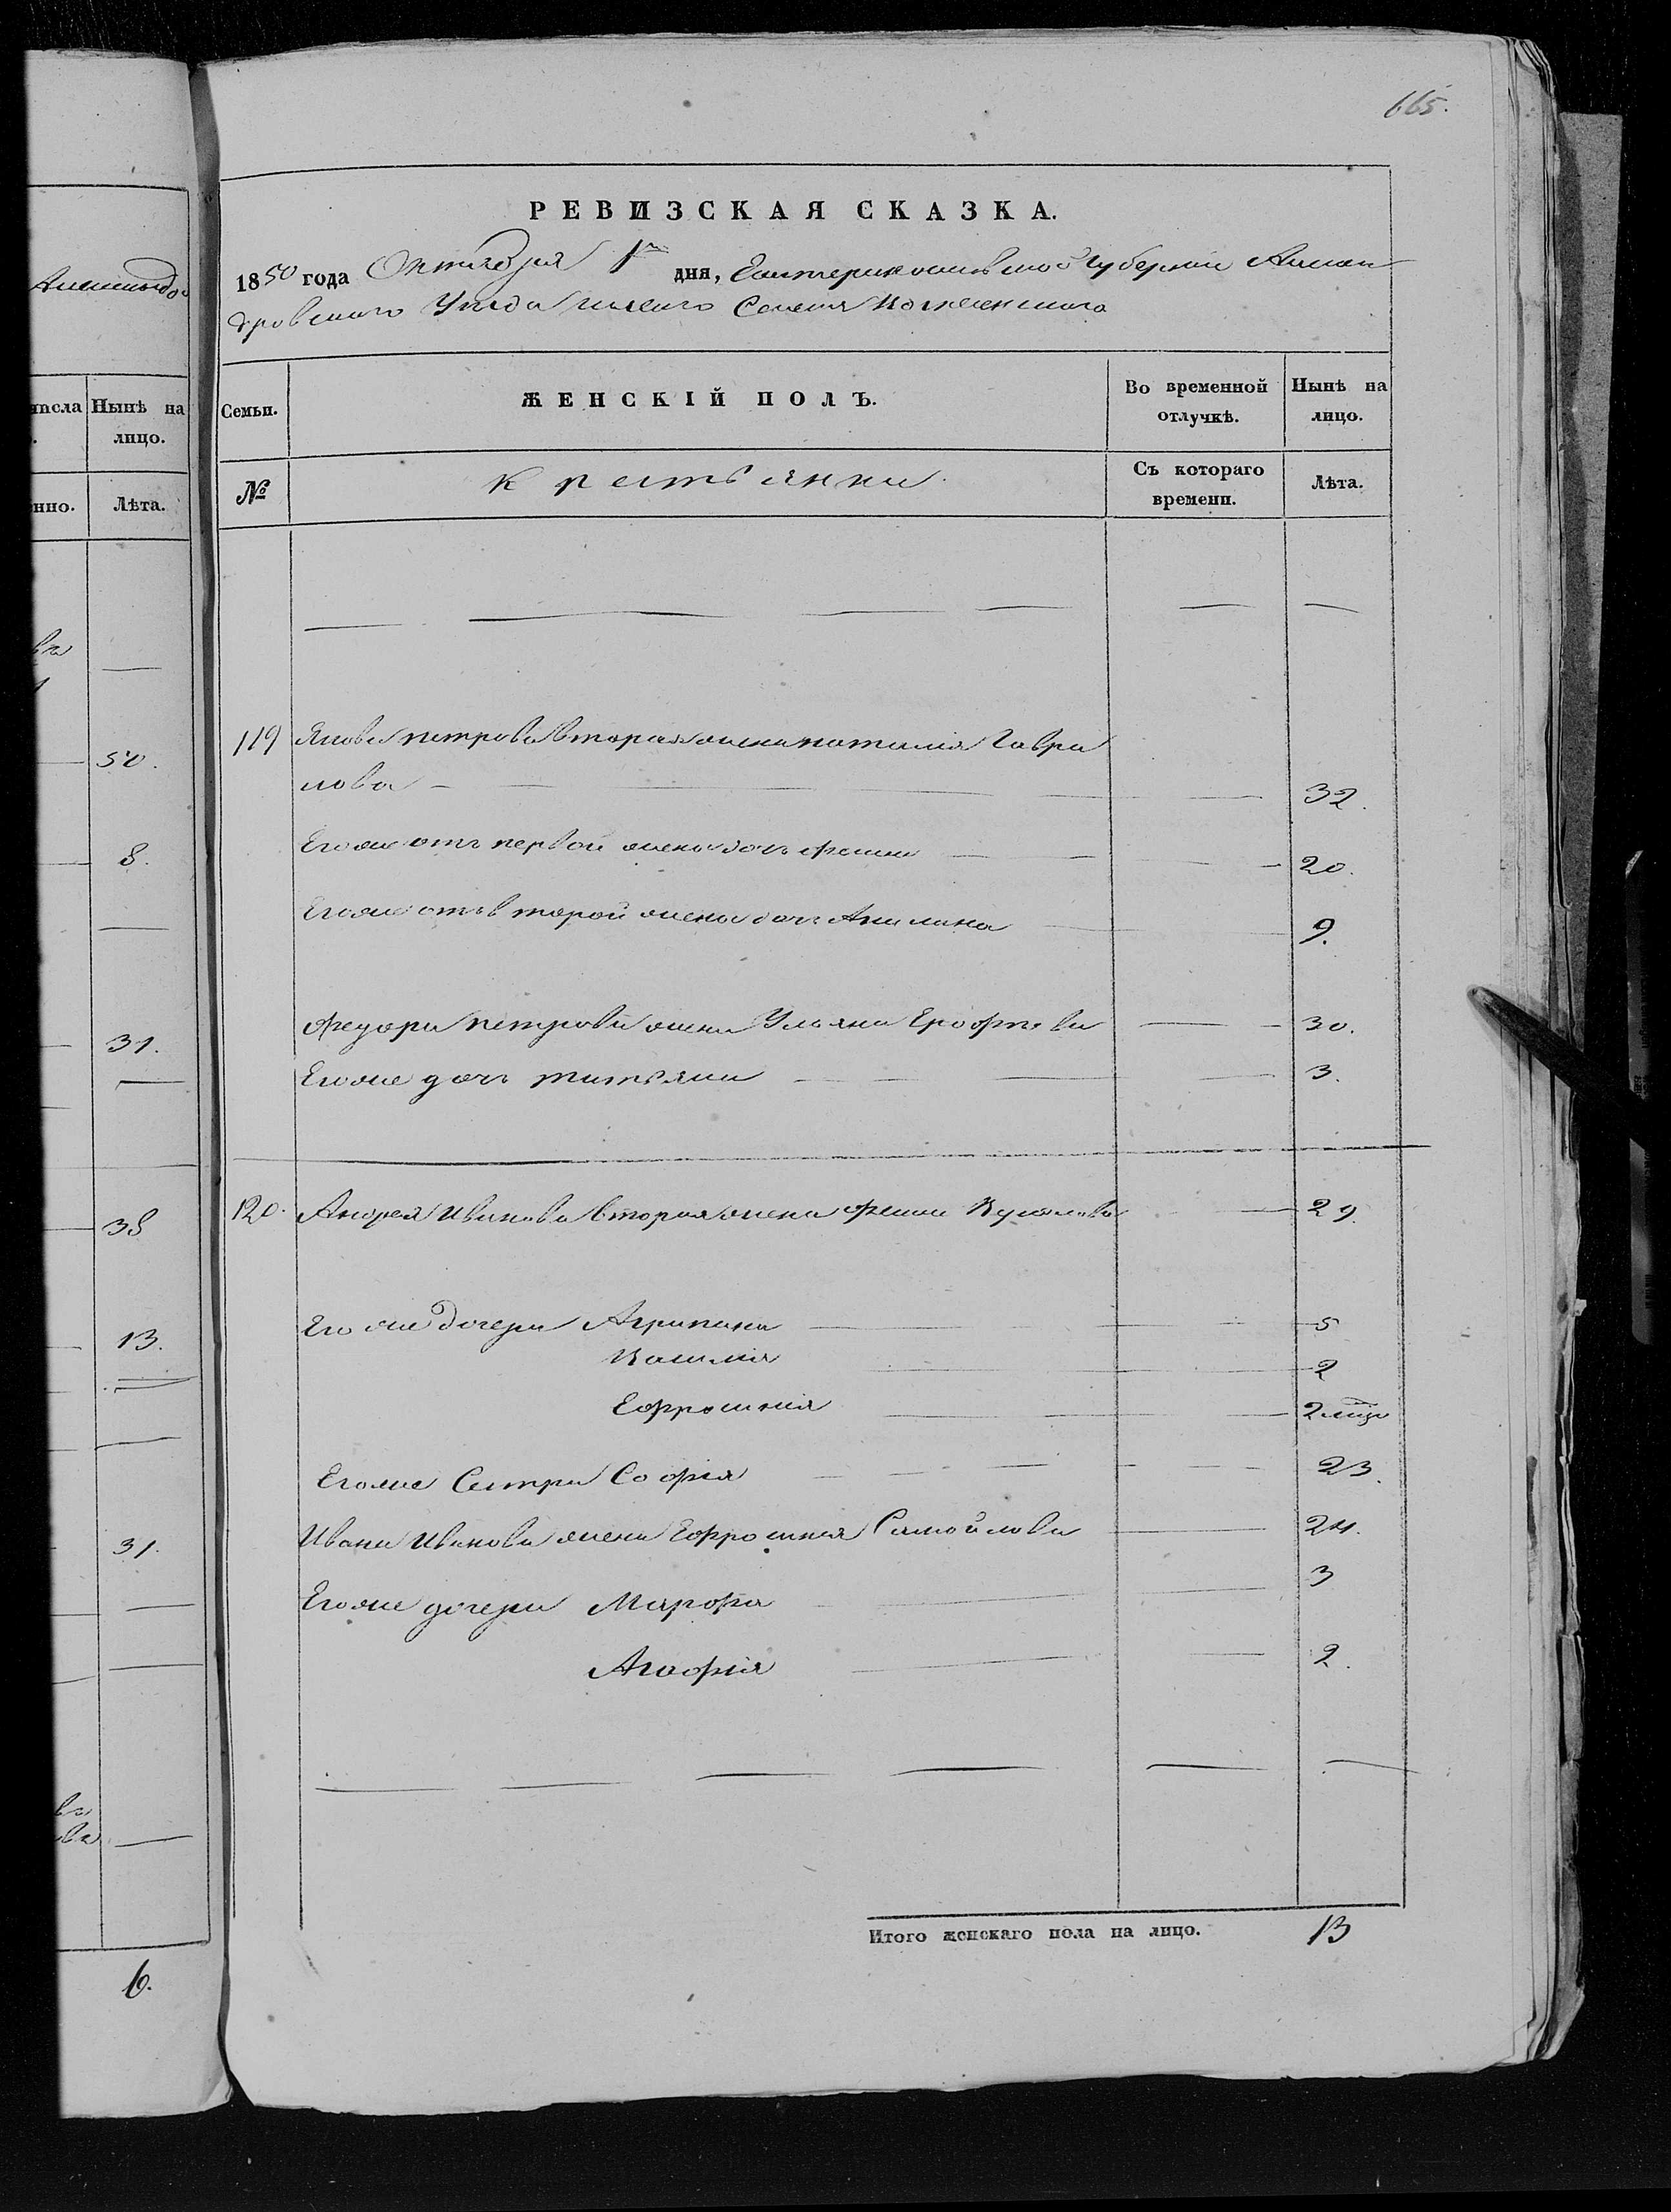 Александо
нписла Нынѣ на
лицо.
нно. Лѣта.
50.
8.
31.
38
13.
31.
6.
665.
РЕВИЗСКАЯ СКАЗКА.
1850 года Октября 1го дня, Екатеринославской Губернии Алексан
дровского Уезда Селения
Семьи. ЖЕНСКІЙ ПОЛЪ. Во временной отлучкѣ. Нынѣ на лицо.
№ Крестьянки Съ котораго времени. Лѣта.
119 Якова петрова вторая жена наталия Гаври
лова 32.
Егоже отъ первой жены дочь 20.
Егоже отъ второй жены дочь Акилина 9.
Федора петрова жена Ульяна Ерофѣева 30.
Егоже дочь татьяна 3.
120. Андрея Иванова вторая жена 29.
Егоже дочери Агрипина 5
2
Ефросиния 2 мѣця
Егоже Сестра Софія 23.
Ивана Иванова жена Ефросиния Самойлова 24.
Егоже дочери Марфа 3
Агафія 2.
Итого женскаго пола на лицо. 13